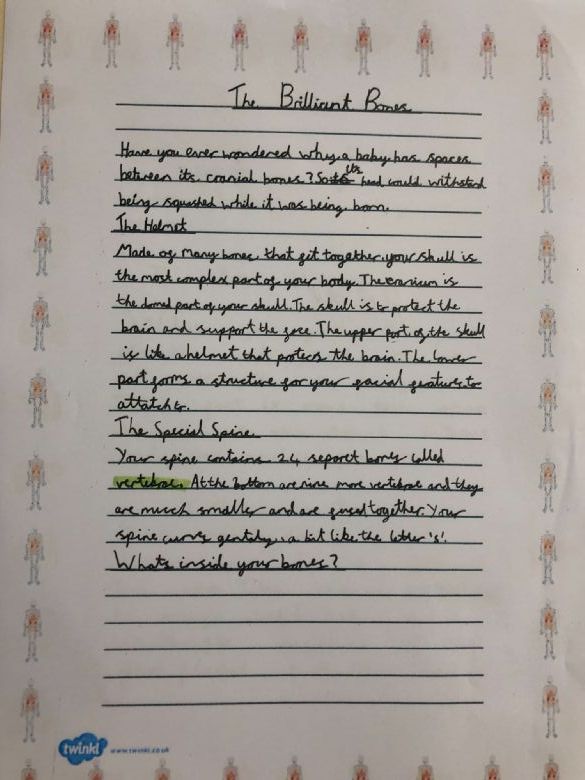 The Brilliant Bones
Have you ever wondered why a baby has spaces
between its cranial bones? So its head could withstand
being squashed while it was being born.
The Helmet
Made of many bones, that fit together, your skull is
the most complex part of your body. The cranium is
the domed part of your skull. The skull is to protect the
brain and support the face. The upper part of the skull
is like a helmet that protects the brain. The lower
part forms a structure for your facial features to
attatch to.
The Special Spine
Your spine contains 24 separet bones called
vertebrae. At the bottom are nine more vertebrae and they
are much smaller and are fused together. Your
spine curves gently, a bit like the letter 's'.
Whats inside your bones?
twinkl www.twinkl.co.uk